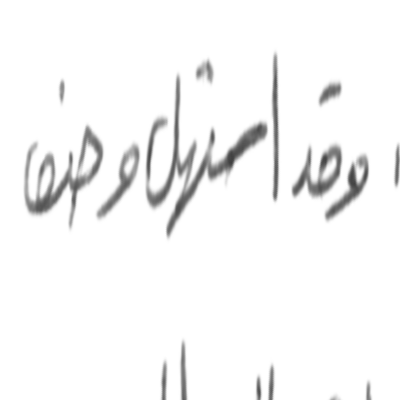 وقد استهل وصف